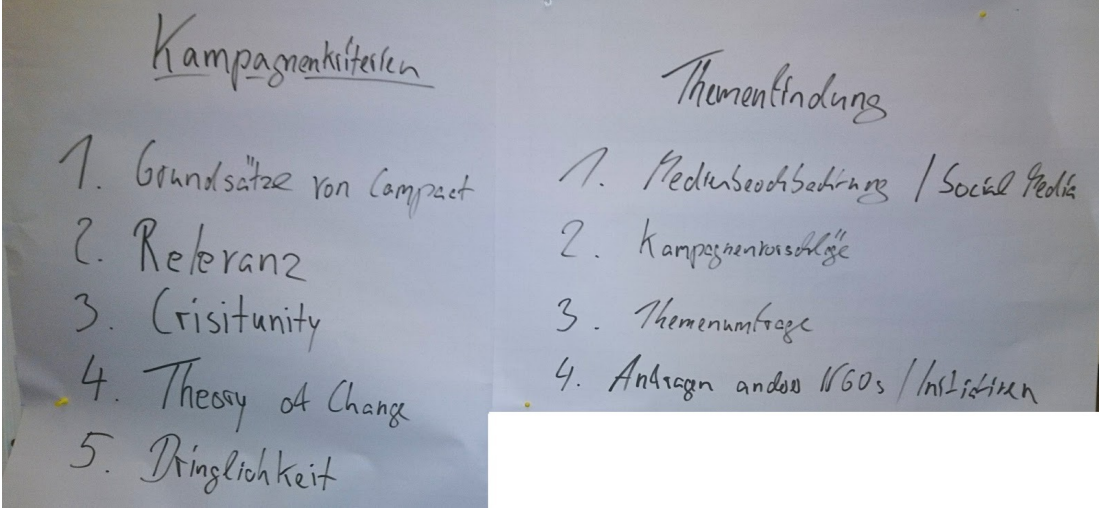 Kampagnenkriterien
1. Grundsätze von Campact
2. Relevanz
3. Crisitunity
4. Theory of Change
5. Dringlichkeit
Themenfindung
1. Medienbeobachtung / Social Media
2. Kampagnenvorschläge
3. Themenumfrage
4. Anfragen anderer NGOs / Initiativen